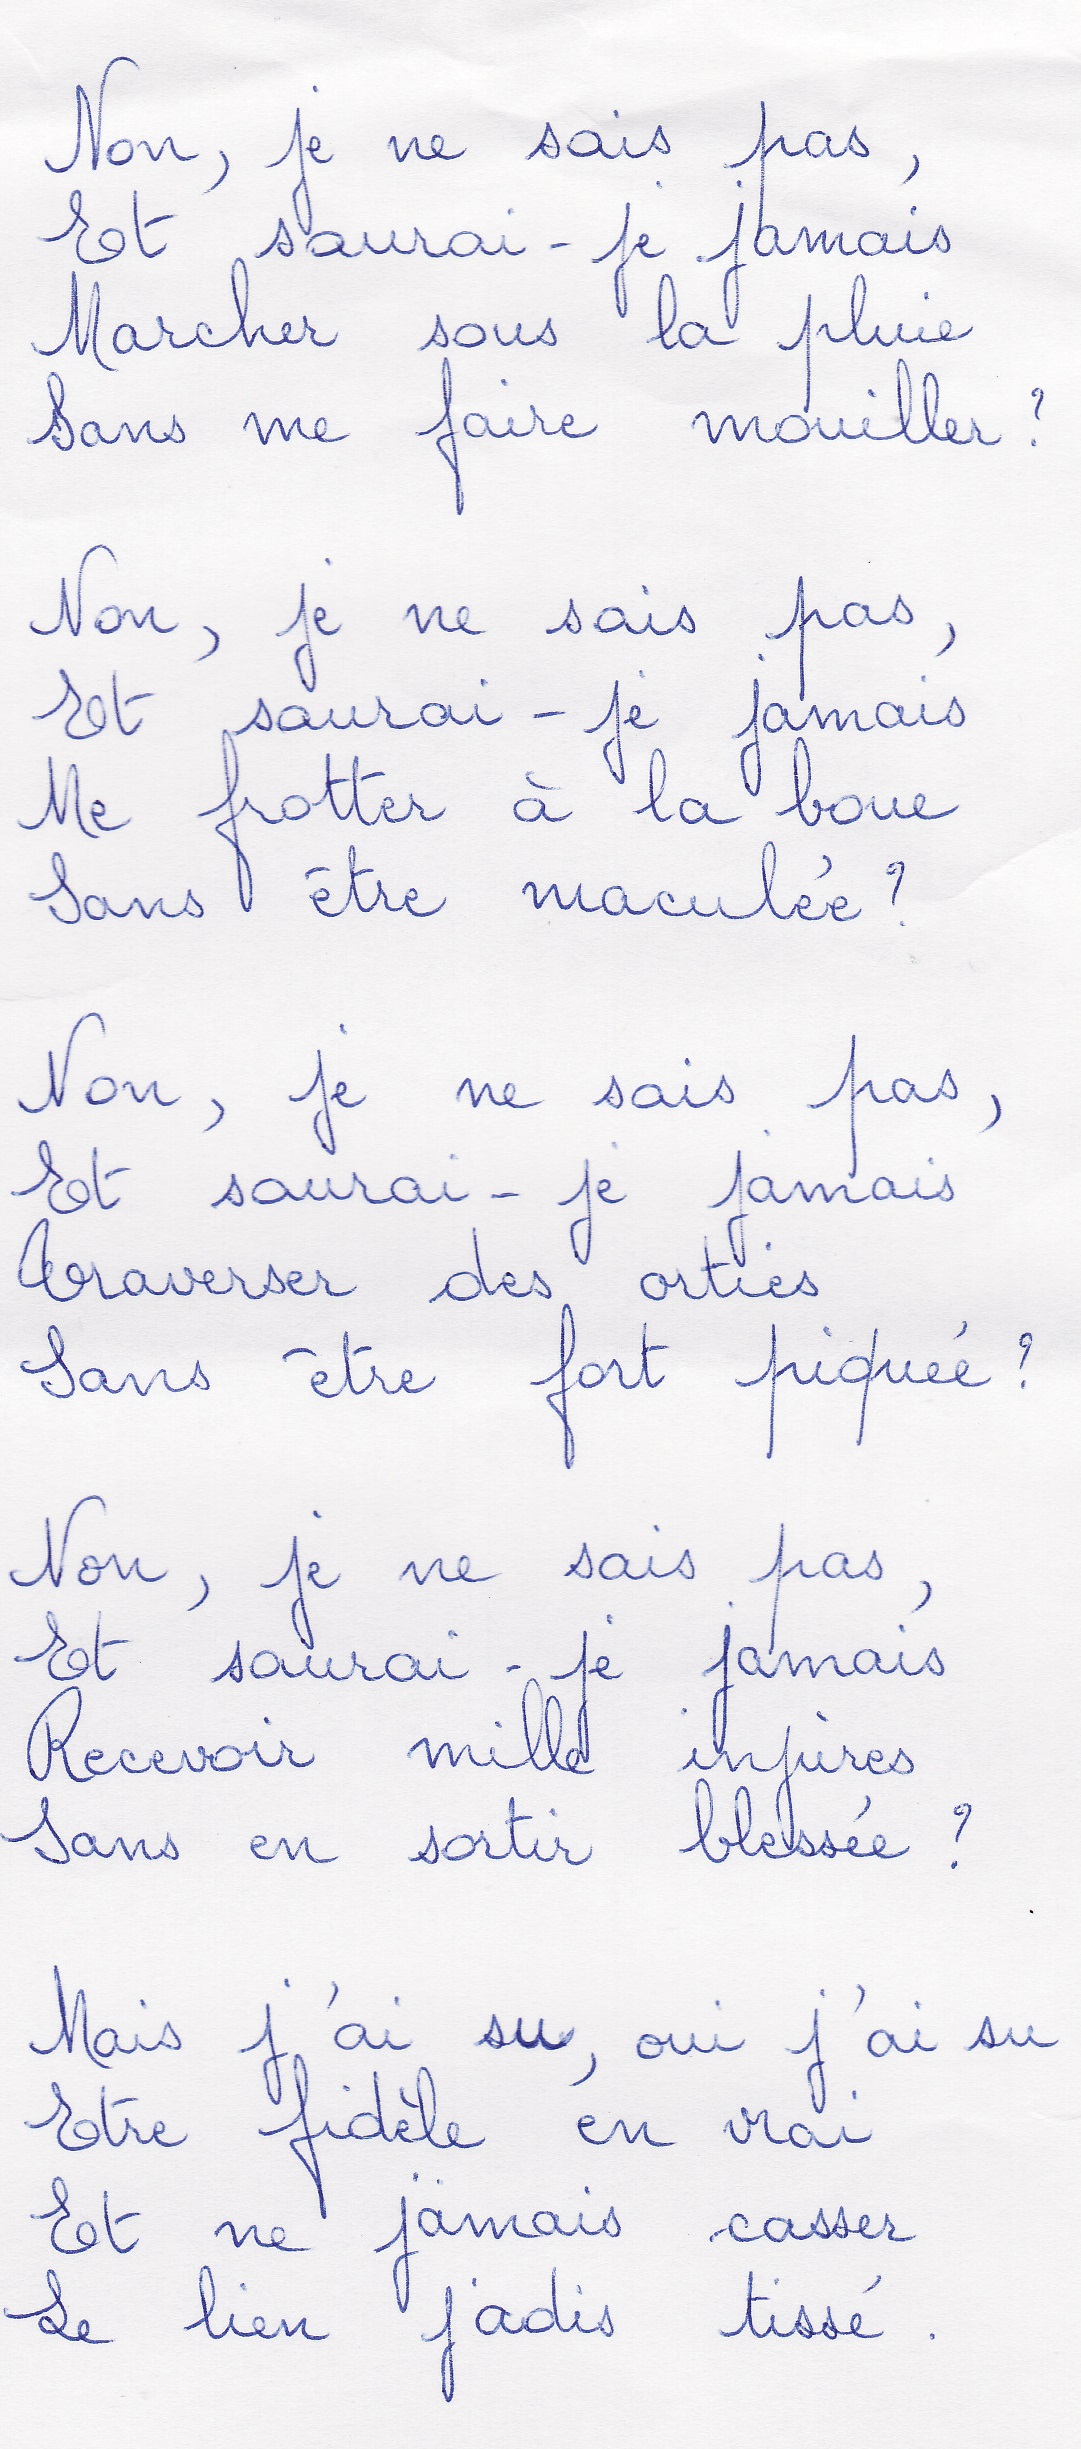 Non, je ne sais pas,
Et saurai-je jamais
Marcher sous la pluie
Sans me faire mouiller ?
Non, je ne sais pas,
Et saurai-je jamais
Me frotter à la boue
Sans être maculée ?
Non, je ne sais pas,
Et saurai-je jamais
Traverser des orties
Sans être fort piquée ?
Non, je ne sais pas,
Et saurai-je jamais
Recevoir mille injures
Sans en sortir blessée ?
Mais j'ai su, oui j'ai su
Etre fidèle en vrai
Et ne jamais casser
Le lien jadis tissé.